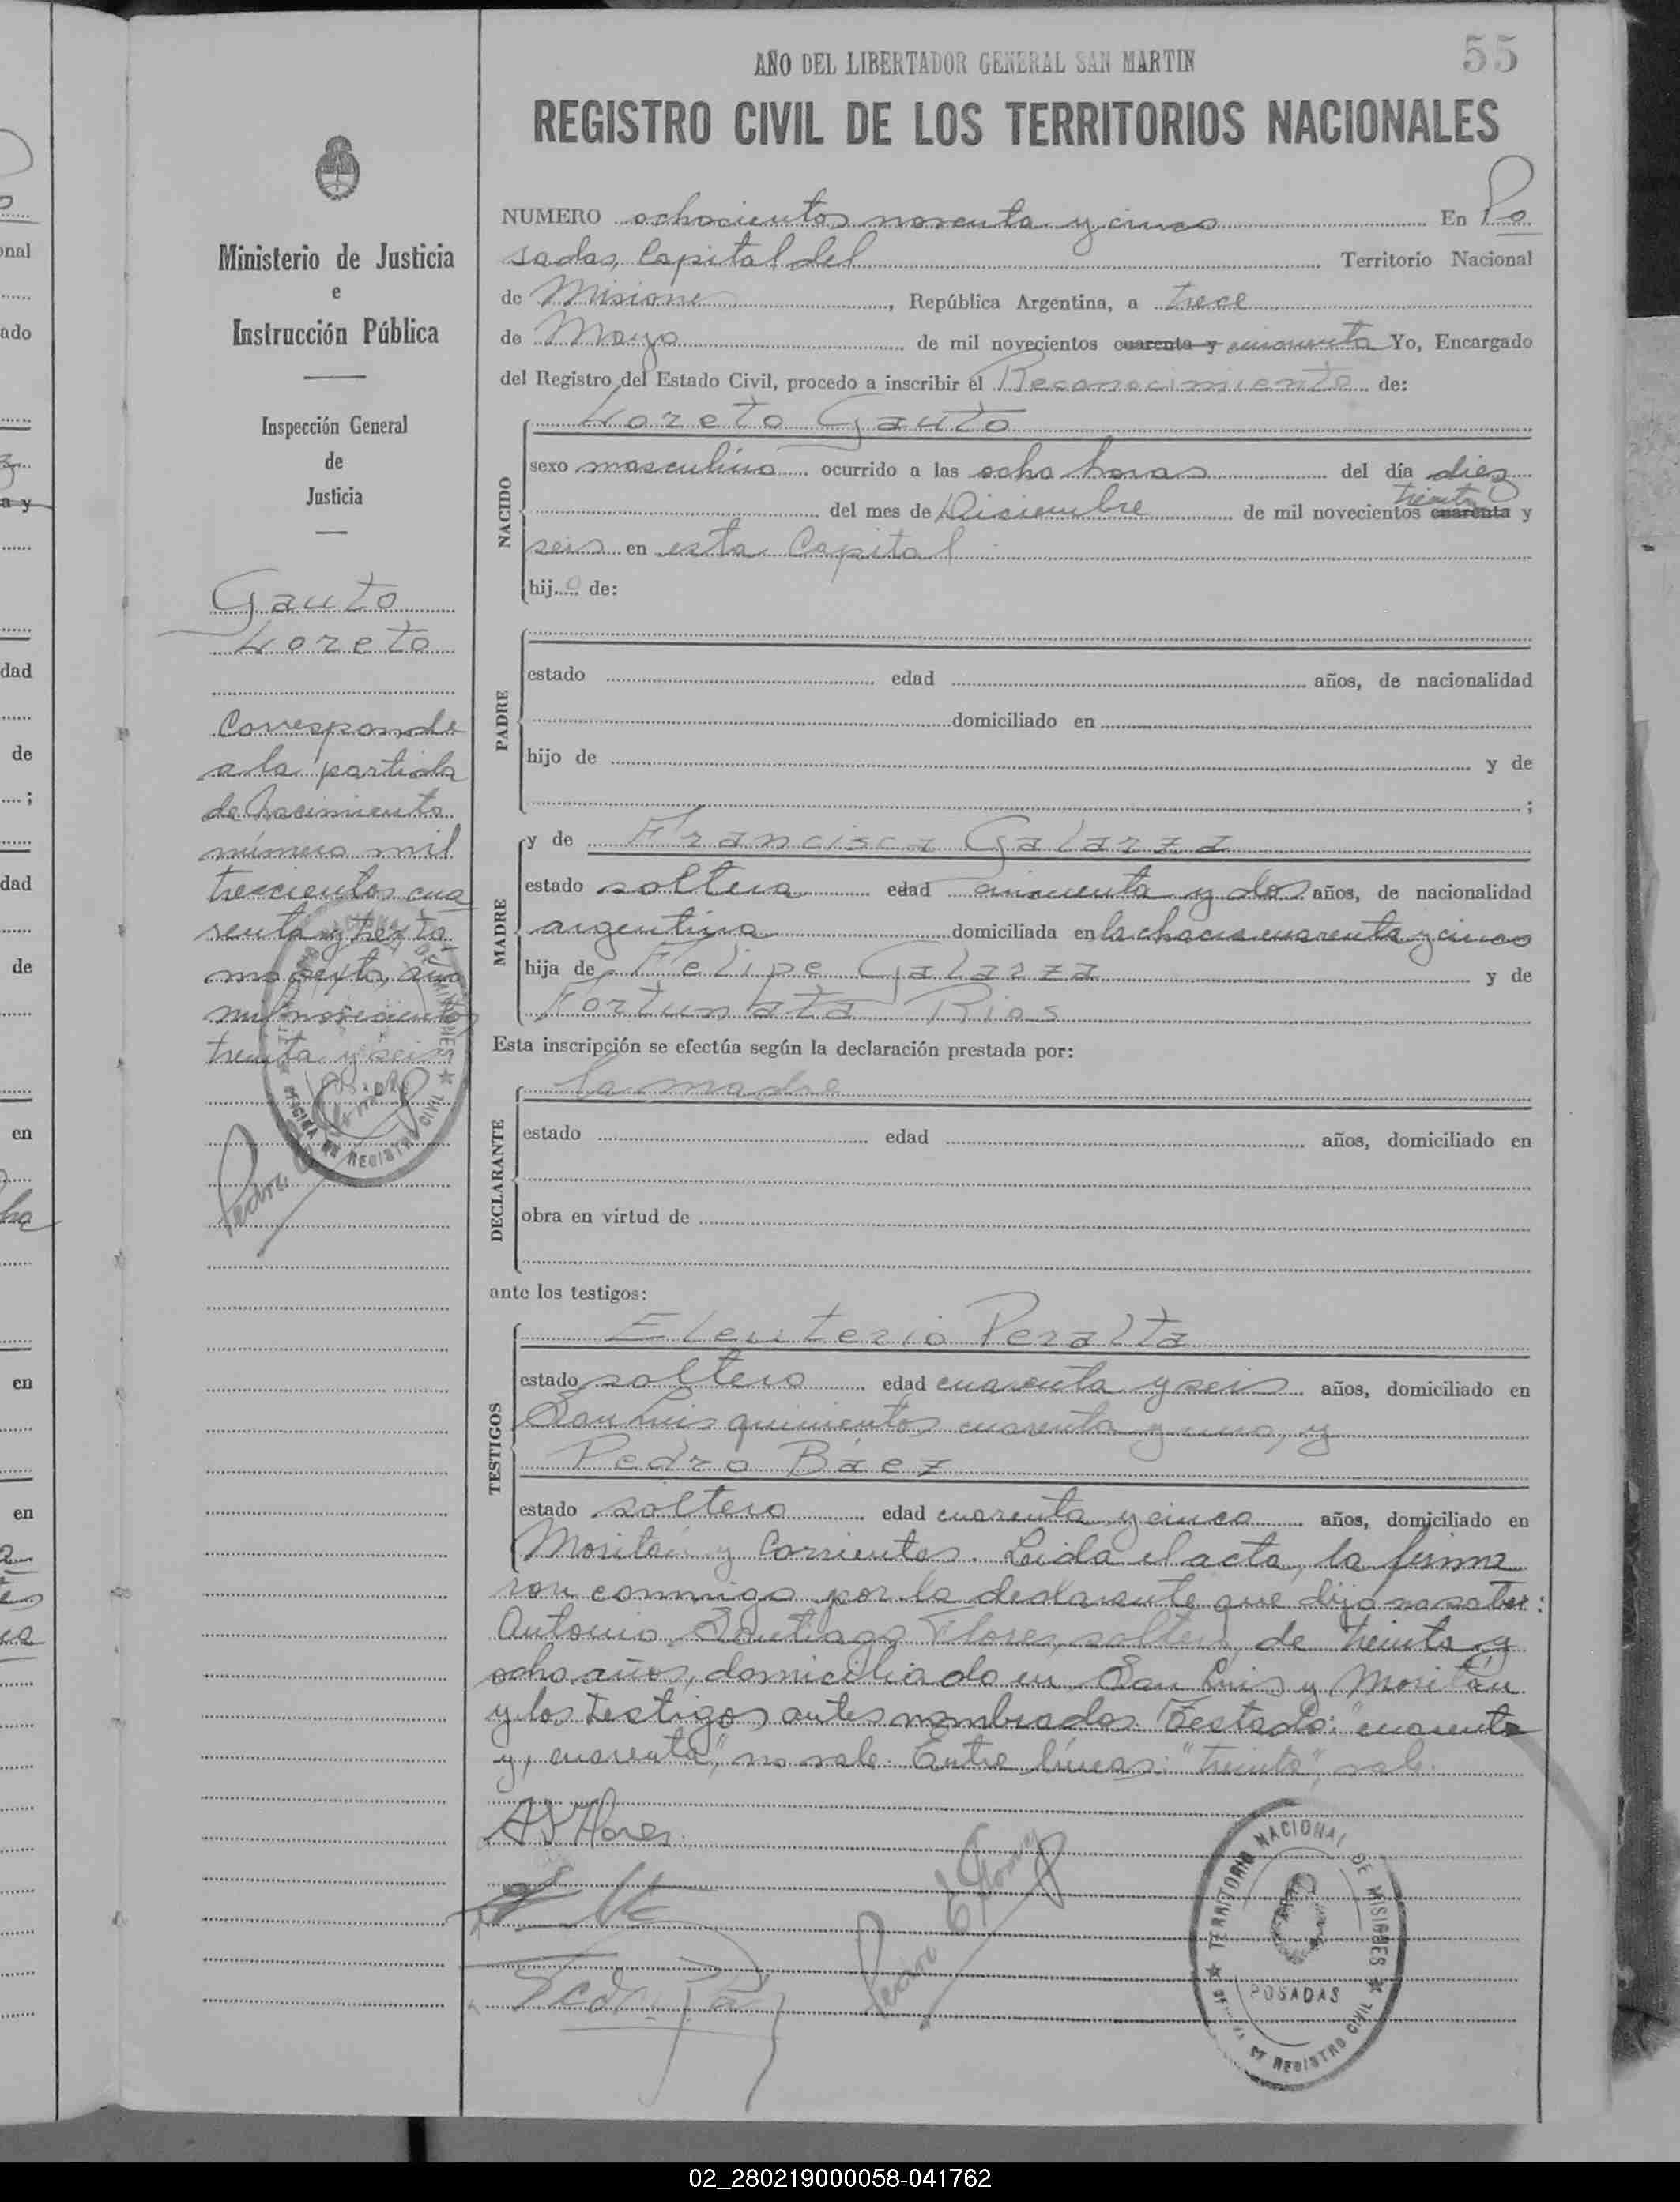 55
AÑO DEL LIBERTADOR GENERAL SAN MARTIN
REGISTRO CIVIL DE LOS TERRITORIOS NACIONALES
Ministerio de Justicia
e
Instrucción Pública
Inspección General
de
Justicia
Gauto
Loreto
Corresponde
a la partida
de Nacimiento
número mil
trescientos cua
renta y
mo sexto, año
mil novecientos
treinta y seis
NUMERO ochocientos noventa y cinco En Po
sadas, Capital del Territorio Nacional
de Misiones, República Argentina, a trece
de Mayo de mil novecientos cuarenta y cincuenta Yo, Encargado
del Registro del Estado Civil, procedo a inscribir el Reconocimiento de:
NACIDO
Loreto Gauto
sexo masculino ocurrido a las ocho horas del día diez
treinta
del mes de Diciembre de mil novecientos cuarenta y
seis en esta Capital
hijo de:
PADRE
estado edad años, de nacionalidad
domiciliado en
hijo de y de
;
MADRE
y de Francisca Galarza
estado soltera edad cincuenta y dos años, de nacionalidad
argentina domiciliada en la chacra cuarenta y cinco
hija de Felipe Galarza y de
Fortunata Rios
Esta inscripción se efectúa según la declaración prestada por:
DECLARANTE
la madre
estado edad años, domiciliado en
obra en virtud de
ante los testigos:
TESTIGOS
Eleuterio Peralta
estado soltero edad cuarenta y seis años, domiciliado en
San Luis quinientos cuarenta y uno, y
Pedro Báez
estado soltero edad cuarenta y cinco años, domiciliado en
Moritán y Corrientes. Leída el acta, la firma
ron conmigo por la declarante que dijo no saber:
Antonio Santiago Flores, soltero, de treinta y
ocho años, domiciliado en San Luis y Moritán
y los testigos antes nombrados. Testado: "cuarenta
y, cuarenta", no vale. Entre líneas: "treinta", vale.
A S Flores
Pedro
TERRITORIO NACIONAL DE MISIONES
POSADAS
REGISTRO CIVIL
02_280219000058-041762